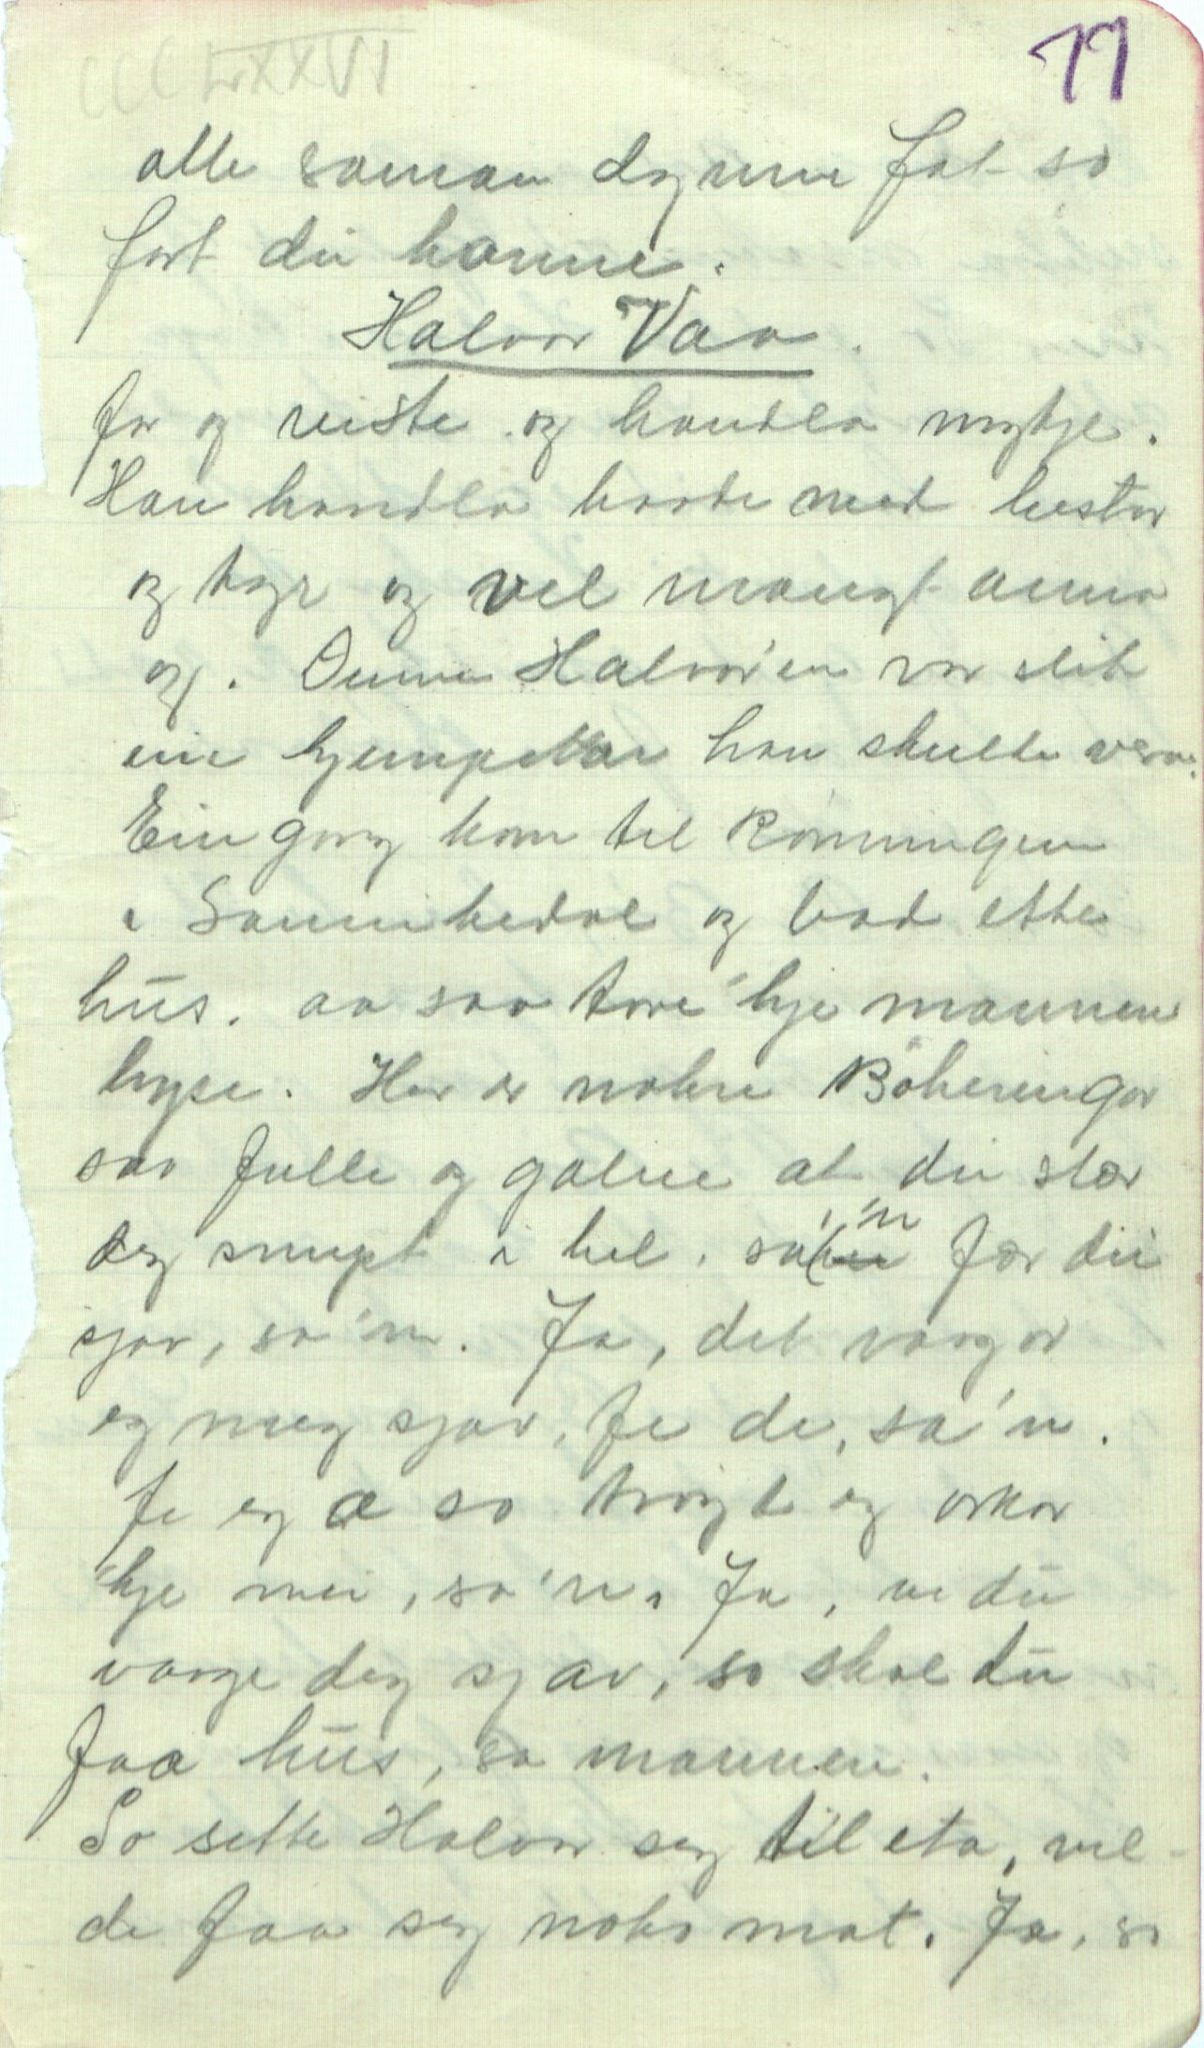 CCCLXXVI
77
alle saman dynne fat so
fort du kanne.
Halvor Vaa.
for og reiste og handla mykje.
Han handla baade med hestar
og kyr og vel mangt anna
og. Denne Halvor'en var slik
ein kjempekar han skulde vera.
Ein gong kom til Rønningen
i Sannikedal og bad ette
hus. aa saa tore 'kje mannen
hyse. Her er nokre Bøheringar
saa fulle og galne at du slær
deg snugt i hel. sa 'n før du
sjøv, sa 'n. Ja, det vergar
eg meg sjøv, fe de, sa 'n.
fe eg æ so trøyt eg orkar
'kje mei, sa 'n. Ja, ve du
verge deg sjøv, so skal du
faa hus, sa mannen.
So sette Halvor seg til eta, vil-
de faa seg noko mat. Ja, so